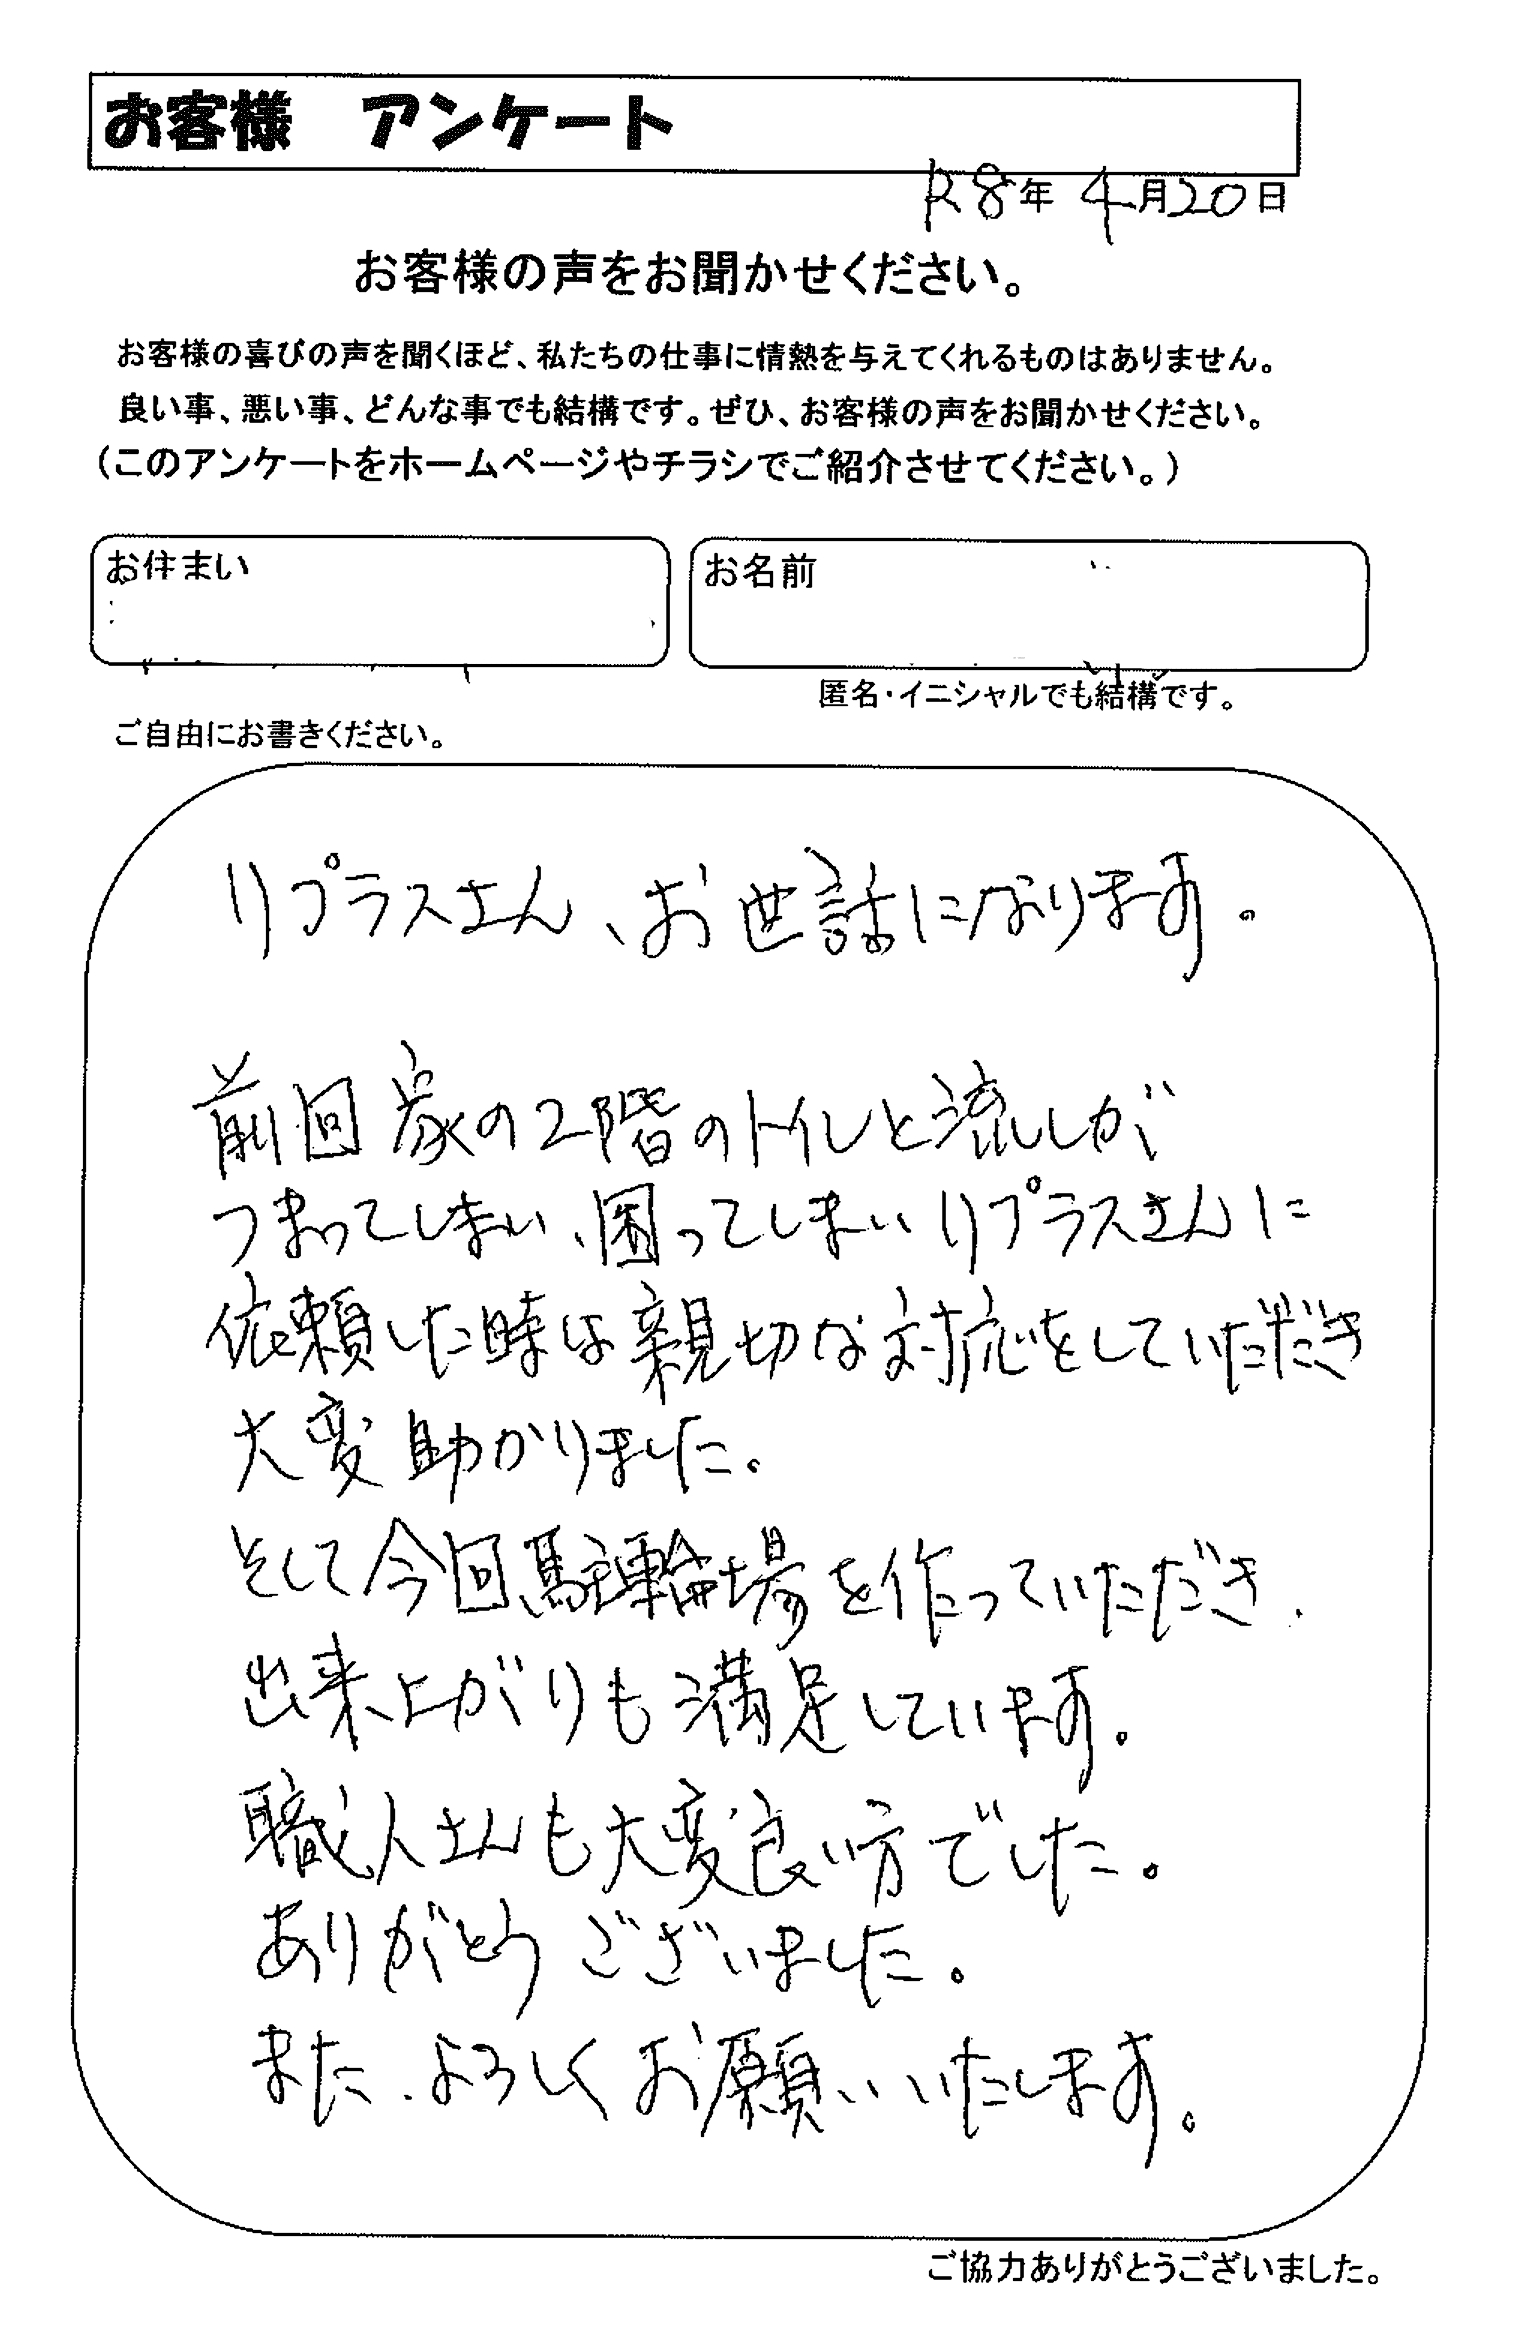 お客様　アンケート
R8年 4月20日
お客様の声をお聞かせください。
お客様の喜びの声を聞くほど、私たちの仕事に情熱を与えてくれるものはありません。
良い事、悪い事、どんな事でも結構です。ぜひ、お客様の声をお聞かせください。
（このアンケートをホームページやチラシでご紹介させてください。）
お住まい
お名前
匿名・イニシャルでも結構です。
ご自由にお書きください。
リプラスさん、お世話になります。
前回家の2階のトイレと流しが
つまってしまい、困ってしまいリプラスさんに
依頼した時は親切な対応をしていただき
大変助かりました。
そして今回、駐輪場を作っていただき、
出来上がりも満足しています。
職人さんも大変良い方でした。
ありがとうございました。
また、よろしくお願いいたします。
ご協力ありがとうございました。